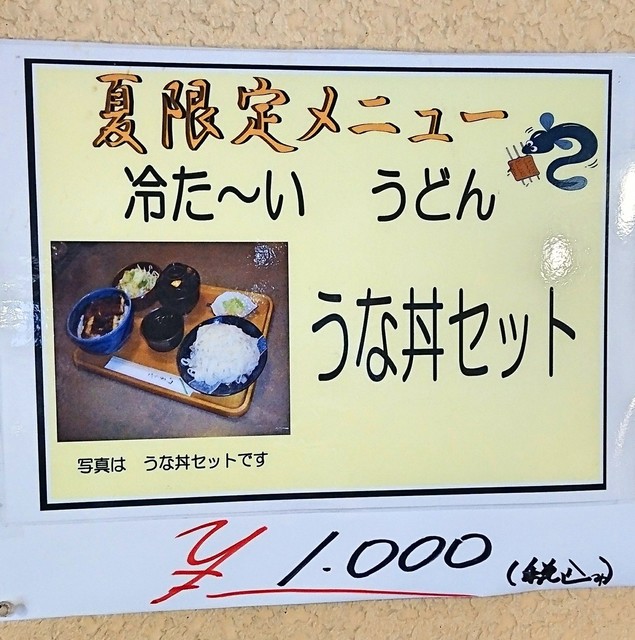 夏限定メニュー
冷た～い　うどん
うな丼セット
写真は　うな丼セットです
¥1.000(税込み)